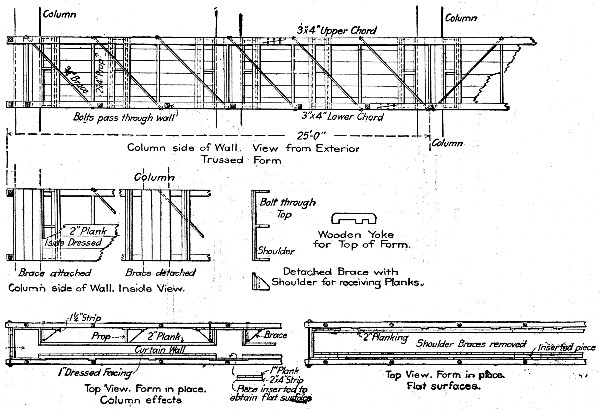 Column
Column
3"x4" Upper Chord
3/4" Brace
2"x4" Prop
Bolts pass through wall
3"x4" Lower Chord
25'-0"
Column side of Wall. View from Exterior
Trussed Form
Column
Column
2" Plank
Iside Dressed
Brace attached
Brace detached
Column side of Wall. Inside View.
Bolt through
Top
Shoulder
Wooden Yoke
for Top of Form.
Detached Brace with
Shoulder for receiving Planks.
1½" Strip
Prop
2" Plank
Brace
Curtain Wall
1" Dressed Facing
1" Plank
2"x4" Strip
Piece inserted to
obtain flat surface
Top View. Form in place.
Column effects
2" Planking
Shoulder Braces removed
Inserted piece
Top View. Form in place.
Flat surfaces.